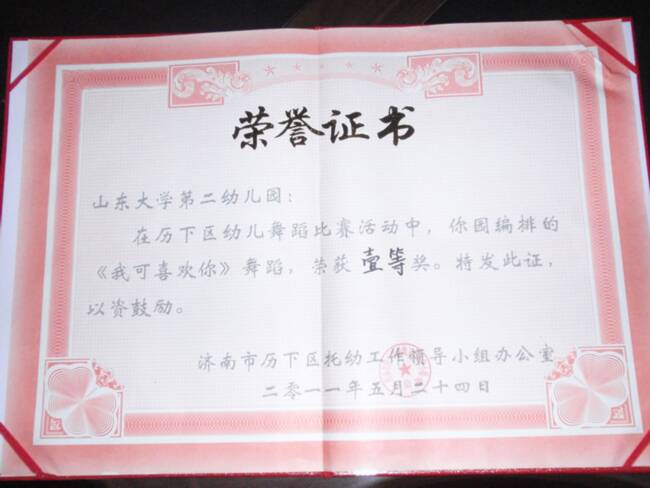 荣誉证书
山东大学第二幼儿园：
在历下区幼儿舞蹈比赛活动中，你园编排的
《我可喜欢你》舞蹈，荣获壹等奖。特发此证，
以资鼓励。
济南市历下区托幼工作领导小组办公室
二零一一年五月二十四日